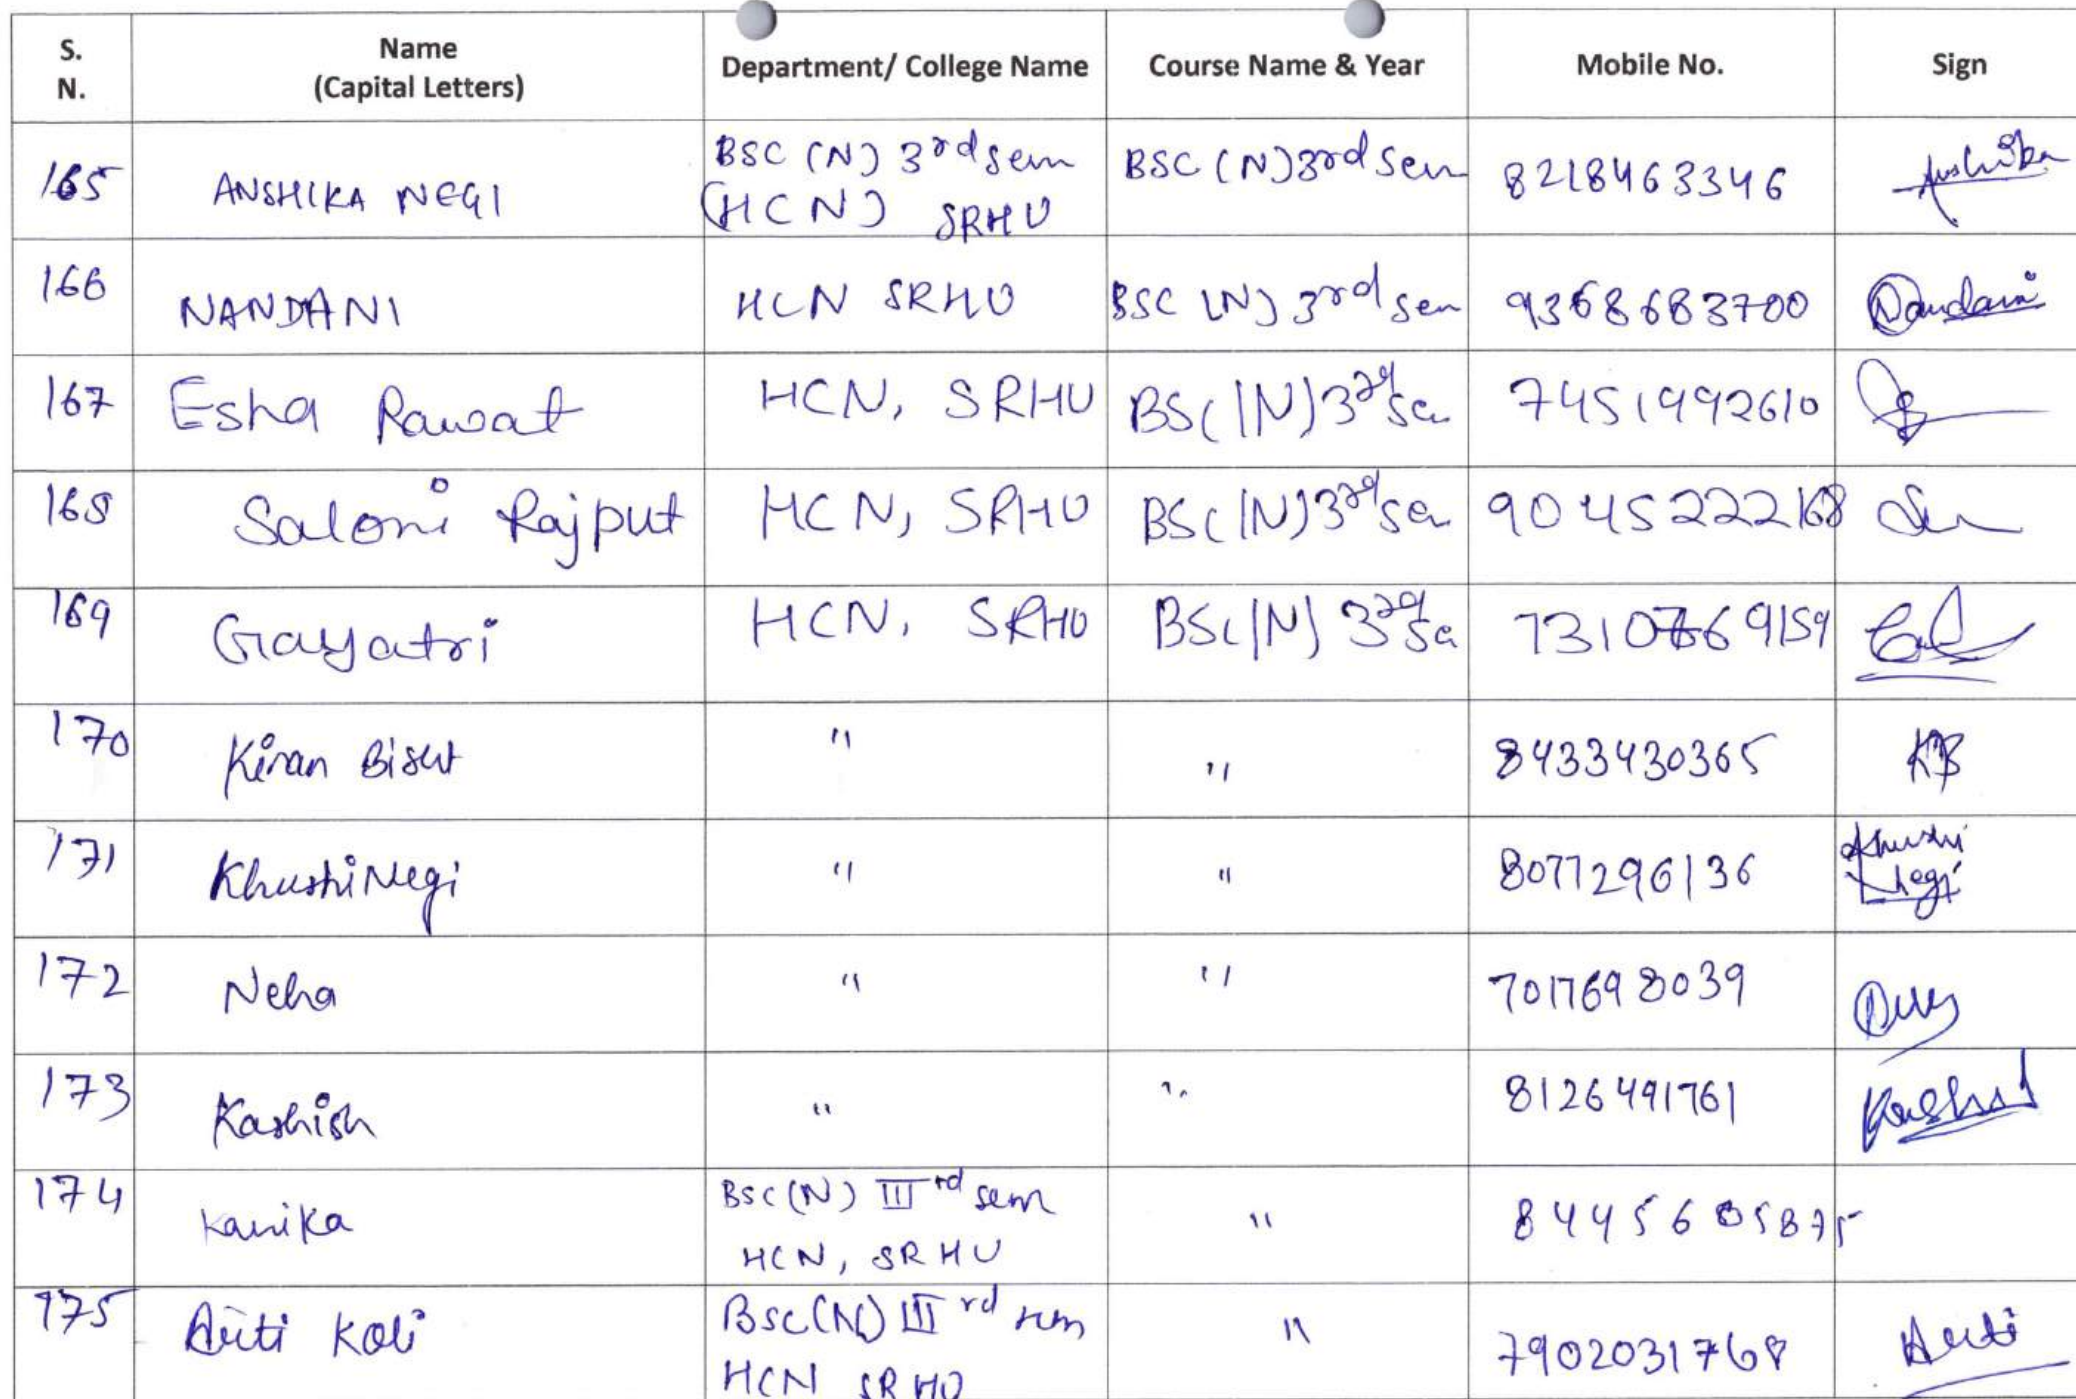 S. N. Name (Capital Letters) Department/ College Name Course Name & Year Mobile No. Sign
165 ANSHIKA NEGI BSC (N) 3rd sem (HCN) SRHU BSC (N) 3rd Sem 8218463346 Anshika
166 NANDANI HCN SRHU BSC (N) 3rd sem 9368683700 Nandani
167 Esha Rawat HCN, SRHU BSc (N) 3rd Sem 7451992610
168 Saloni Rajput HCN, SRHU BSc (N) 3rd Sem 9045222168
169 Gayatri HCN, SRHU BSc (N) 3rd Sem 7310769159
170 Kiran Bisht " " 8433430365 KB
171 Khushi Negi " " 8077296136 Khushi Negi
172 Neha " " 7017698039
173 Kashish " " 8126491761 Kashish
174 Kanika Bsc (N) III rd sem HCN, SRHU " 8445605875
175 Koli Bsc (N) III rd sem HCN SRHU " 7902031768